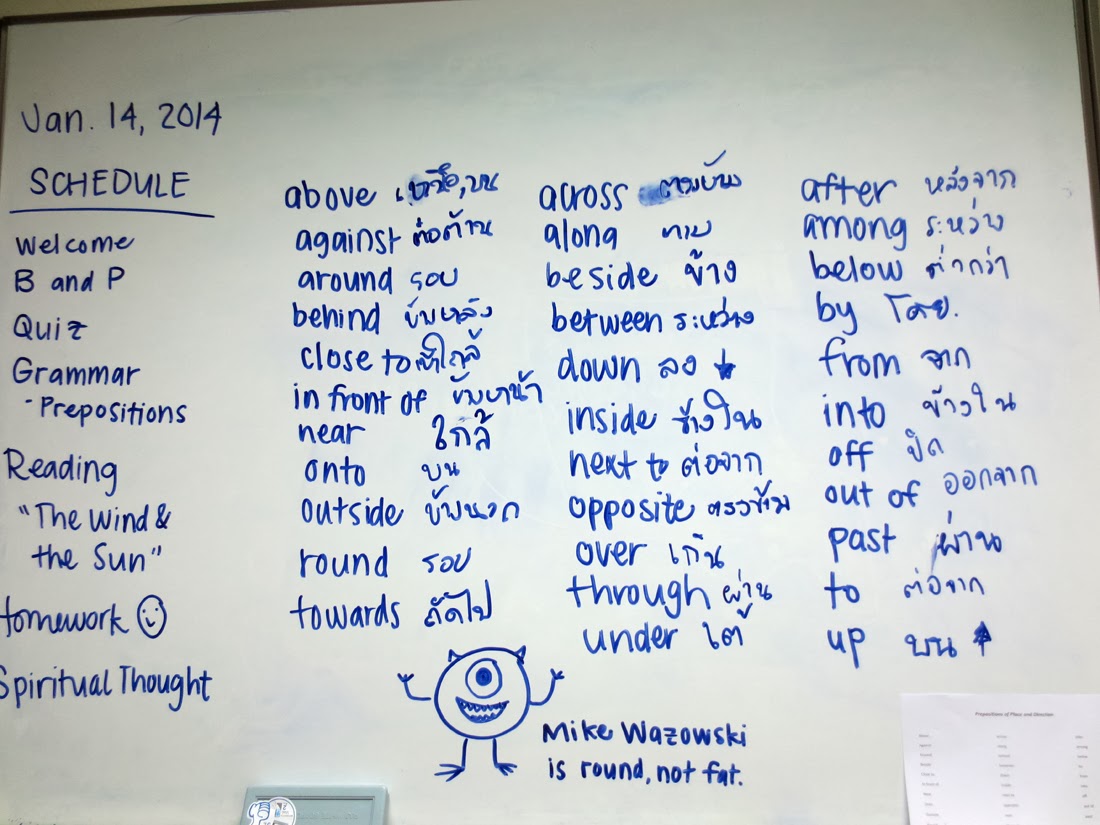 Jan. 14, 2014
SCHEDULE
Welcome
B and P
Quiz
Grammar
- Prepositions
Reading
"The Wind &
the Sun"
Homework
Spiritual Thought
above เหนือ, บน
against ต่อต้าน
around รอบ
behind ข้างหลัง
close to เข้าใกล้
in front of ข้างหน้า
near ใกล้
onto บน
outside ข้างนอก
round รอบ
towards ถัดไป
across
along ตาม
beside ข้าง
between ระหว่าง
down ลง
inside ข้างใน
next to ต่อจาก
opposite ตรงข้าม
over เกิน
through ผ่าน
under ใต้
after หลังจาก
among ระหว่าง
below ต่ำกว่า
by โดย.
from จาก
into ข้างใน
off ปิด
out of ออกจาก
past ผ่าน
to ต่อจาก
up บน
Mike Wazowski
is round, not fat.
Prepositions of Place and Direction